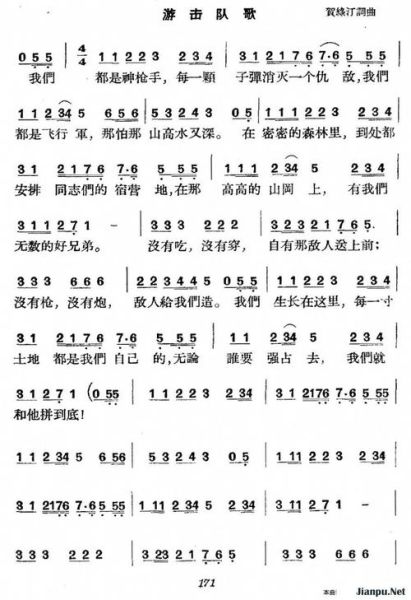 游击队歌
賀綠汀詞曲
0 5 5 | 4/4 1 1 2 2 3 2 2 3 4 | 3 1 2 1 7 6 7·6 5 5 5 |
我們 都是神枪手，每一顆 子彈消灭一个仇 敌，我們
1 1 2 3 4 5 6 5 6 | 5 3 2 4 3 0 5 | 1 1 2 2 3 2 2 3 4 |
都是飞行 軍，那怕那 山高水又深。在 密密的森林里，到处都
3 1 2 1 7 6 7·6 5 5 5 | 1 1 1 2 3 4 5 2 3 4 |
安排 同志們的宿营 地，在那 高高的山岡 上，有我們
3 1 1 1 2 7 1 – | 3 3 3 2 2 2 | 3 2 3 2 1 7 6 5 |
无数的好兄弟。 沒有吃，沒有穿， 自有那敌人送上前；
3 3 3 6 6 6 | 2 2 3 4 4 5 0 5 | 1 1 2 2 3 2 2 3 4 |
沒有枪，沒有炮， 敌人給我們造。我們 生长在这里，每一寸
3 1 2 1 7 6 7·6 5 5 5 | 1 1 2 3 4 5 2 3 4 |
土地 都是我們 自己 的，无論 誰要 强占 去，我們就
3 1 2 7 1 (0 5 5 | 1 1 2 2 3 2 3 4 | 3 1 2 1 7 6 7·6 5 5 5 |
和他拼到底！
1 1 2 3 4 5 6 5 6 | 5 3 2 4 3 0 5 | 1 1 1 2 2 3 2 3 4 |
3 1 2 1 7 6 7·6 5 5 5 | 1 1 1 2 3 4 5 2 3 4 | 3 1 1 2 7 1 – |
3 3 3 2 2 2 | 3 2 3 2 1 7 6 5 | 3 3 3 6 6 6 |
171
Jianpu.Net